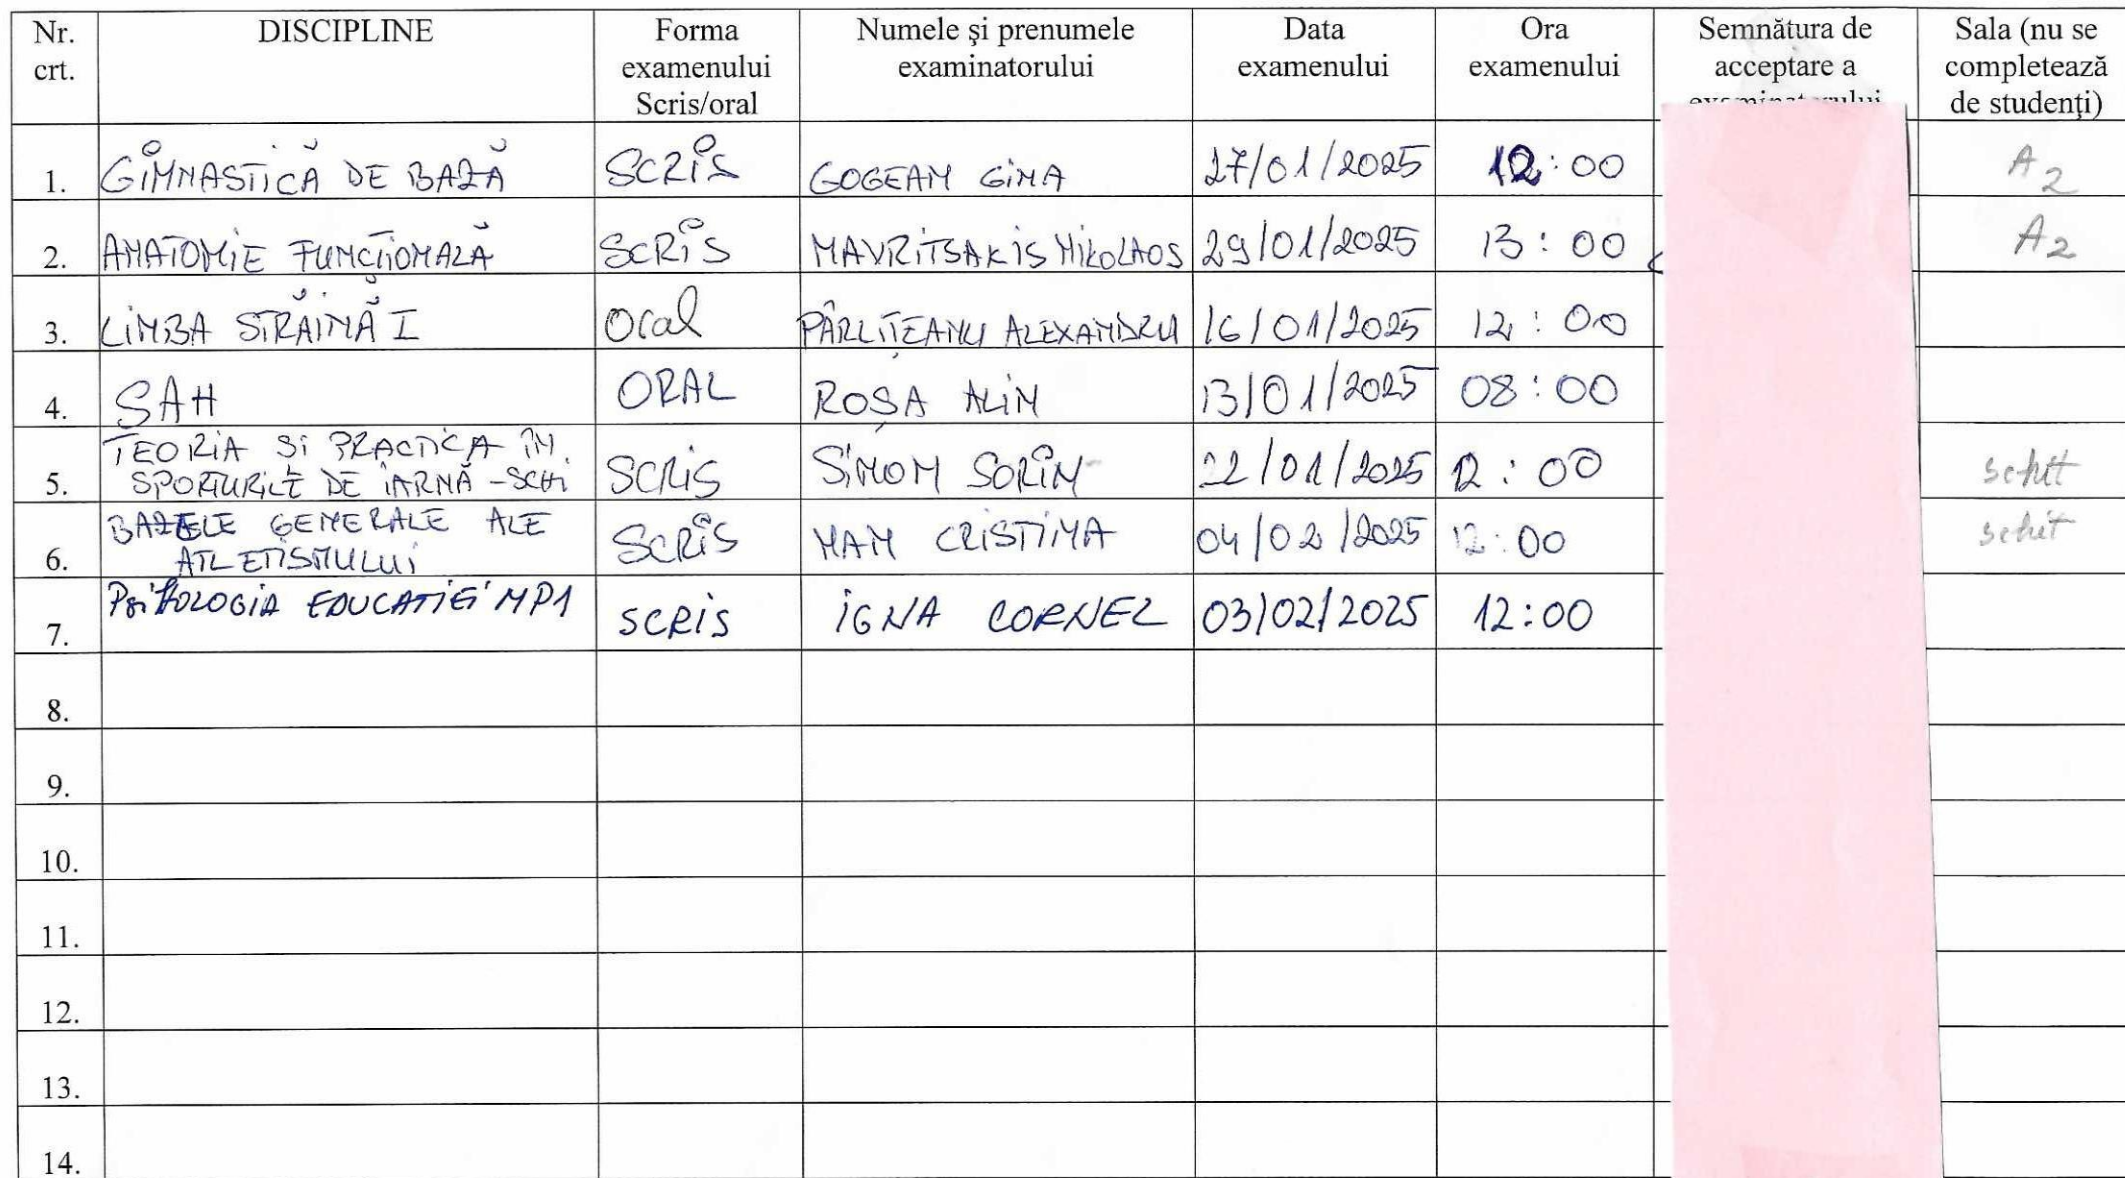 Nr. crt. DISCIPLINE Forma examenului Scris/oral Numele şi prenumele examinatorului Data examenului Ora examenului Semnătura de acceptare a examinatorului Sala (nu se completează de studenţi)
1. GIMNASTICĂ DE BAZĂ SCRIS GOGEAN GINA 27/01/2025 12:00 A2
2. ANATOMIE FUNCȚIONALĂ SCRIS MAVRITSAKIS NIKOLAOS 29/01/2025 13:00 A2
3. LIMBA STRĂINĂ I Oral PÂRLIȚEANU ALEXANDRU 16/01/2025 12:00
4. ȘAH ORAL ROȘA ALIN 13/01/2025 08:00
5. TEORIA SI PRACTICA ÎN
SPORTURILE DE IARNĂ - SCHI SCRIS SIMON SORIN 22/01/2025 12:00
6. BAZELE GENERALE ALE
ATLETISMULUI SCRIS NAN CRISTINA 04/02/2025 12:00
7. PSIHOLOGIA EDUCATIEI MP1 SCRIS IGNA CORNEL 03/02/2025 12:00
8.
9.
10.
11.
12.
13.
14.